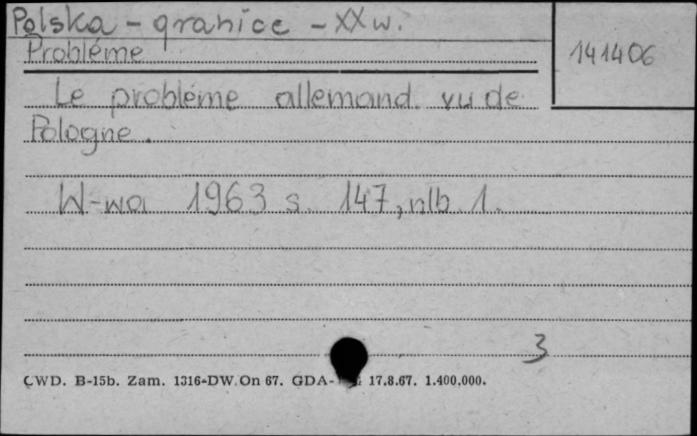 Polska - granice - XX w.
Probléme
141406
Le probléme allemand vu de
Pologne.
W-wa 1963 s. 147, nlb 1.
3
CWD. B-15b. Zam. 1316-DW. On 67. GDA- 17.8.67. 1.400.000.